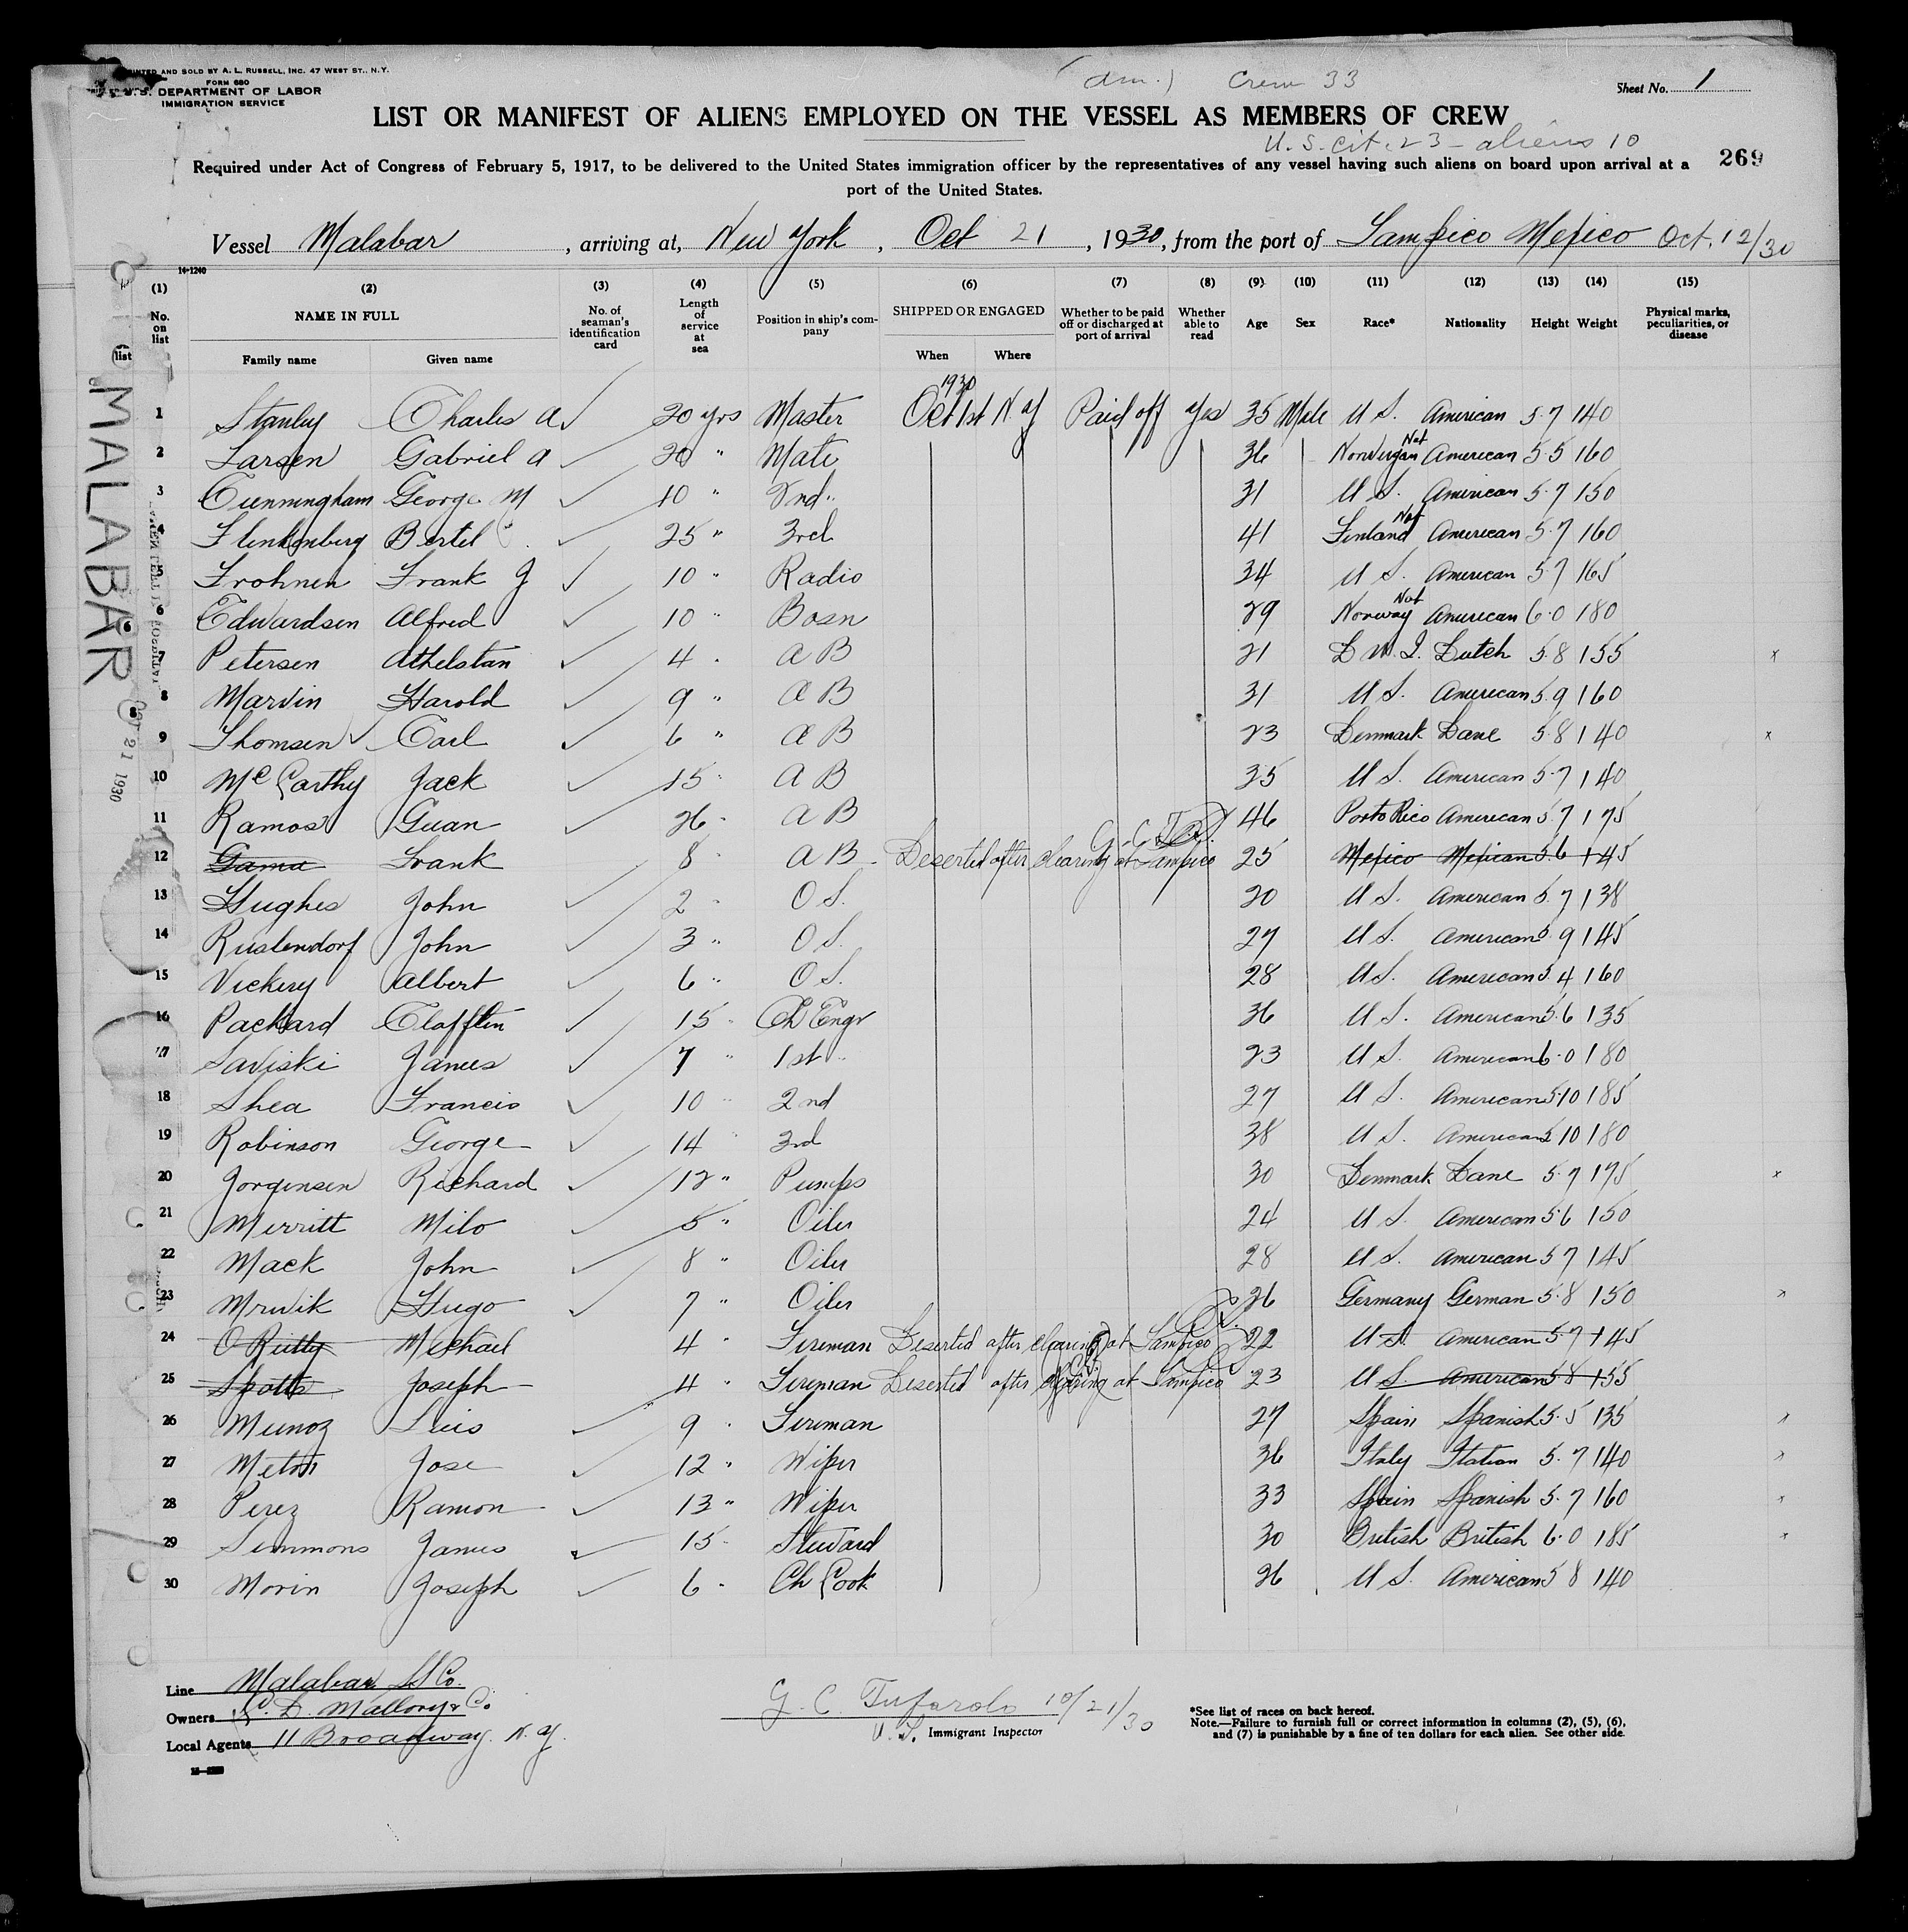 PRINTED AND SOLD BY A. L. RUSSELL, INC. 47 WEST ST., N.Y.
FORM 680
U. S. DEPARTMENT OF LABOR
IMMIGRATION SERVICE
(Am.) Crew 33
Sheet No. 1
LIST OR MANIFEST OF ALIENS EMPLOYED ON THE VESSEL AS MEMBERS OF CREW
U. S. cit. 23 - aliens 10
269
Required under Act of Congress of February 5, 1917, to be delivered to the United States immigration officer by the representatives of any vessel having such aliens on board upon arrival at a
port of the United States.
Vessel Malabar, arriving at, New York, Oct 21, 1930, from the port of Tampico Mexico Oct. 12/30
14-1240
(1) (2) (3) (4) (5) (6) (7) (8) (9) (10) (11) (12) (13) (14) (15)
No. on list NAME IN FULL Family name Given name No. of seaman's identification card Length of service at sea Position in ship's company SHIPPED OR ENGAGED When Where Whether to be paid off or discharged at port of arrival Whether able to read Age Sex Race* Nationality Height Weight Physical marks, peculiarities, or disease
list
MALABAR
OCT 21 1930
1930
1 Stanley Charles A 20 yrs Master Oct 1st N.Y Paid off Yes 35 Male U S. American 5.7 140
2 Larsen Gabriel A 20 " Mate 36 Norwegian Nat American 5.5 160
3 Cunningham George M 10 " 2nd " 31 U S. American 5.7 150
4 Flinkenberg Bertel 25 " 3rd 41 Finland Nat American 5.7 160
5 Frohnen Frank J 10 " Radio 34 U S. American 5.7 165
6 Edwardsen Alfred 10 " Bosn 29 Norway Nat American 6.0 180
7 Petersen Athelstan 4 " A B 21 D W. I. Dutch 5.8 155 x
8 Marvin Harold 9 " A B 31 U S. American 5.9 160
9 Thomsen Carl 6 " A B 23 Denmark Dane 5.8 140 x
10 McCarthy Jack 15 " A B 35 U S. American 5.7 140
11 Ramos Guan 26 " A B 46 Porto Rico American 5.7 175
12 Gama Frank 8 A B - Deserted after clearing at Tampico 25 Mexico Mexican 5.6 145
13 Hughes John 2 " O S. 20 U S. American 5.7 138
14 Ruslendorf John 3 " O S. 27 U S. American 5.9 145
15 Vickery Albert 6 " O S. 28 U S. American 5.4 160
16 Packard Clafflin 15 " Ch Engr 36 U S. American 5.6 135
17 Saviski James 7 " 1st " 23 U S. American 6.0 180
18 Shea Francis 10 " 2nd 27 U S. American 5.10 185
19 Robinson George 14 " 3rd 38 U S. American 5.10 180
20 Jorgensen Richard 12 " Pumps 30 Denmark Dane 5.7 175 x
21 Merritt Milo 5 " Oiler 24 U S. American 5.6 150
22 Mack John 8 " Oiler 28 U S. American 5.7 145
23 Mrwik Hugo 7 " Oiler 26 Germany German 5.8 150 x
24 O Reilly Michael 4 " Fireman Deserted after clearing at Tampico 22 U S. American 5.7 145
25 Spotts Joseph 4 " Fireman Deserted after clearing at Tampico 23 U S. American 5.8 155
26 Munoz Luis 9 " Fireman 27 Spain Spanish 5.5 135 x
27 Jose 12 " Wiper 36 Italy Italian 5.7 140 x
28 Perez Ramon 13 " Wiper 33 Spain Spanish 5.7 160 x
29 Simmons James 15 " Steward 30 British British 6.0 185 x
30 Morin Joseph 6 " Ch Cook 26 U S. American 5.8 140
Line Malabar SS Co.
Owners C. D. Mallory & Co
Local Agents 11 Broadway. N. Y.
G. C. Tufarolo 10/21/30
U. S. Immigrant Inspector
*See list of races on back hereof.
Note.—Failure to furnish full or correct information in columns (2), (5), (6),
and (7) is punishable by a fine of ten dollars for each alien. See other side.